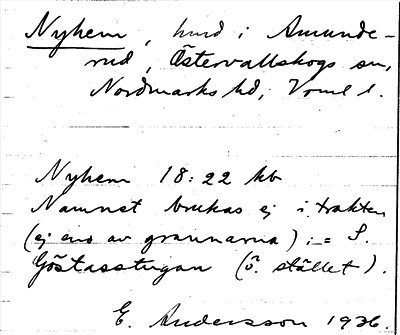 Nyhem, hmd i Amunde-
rud, Östervallskogs sn,
Nordmarks hd, Vrml l.
Nyhem 18:22 kb
Namnet brukas ej i trakten
(ej ens av grannarna) := S.
Göstasstugan (ö. stället).
E. Andersson 1926.